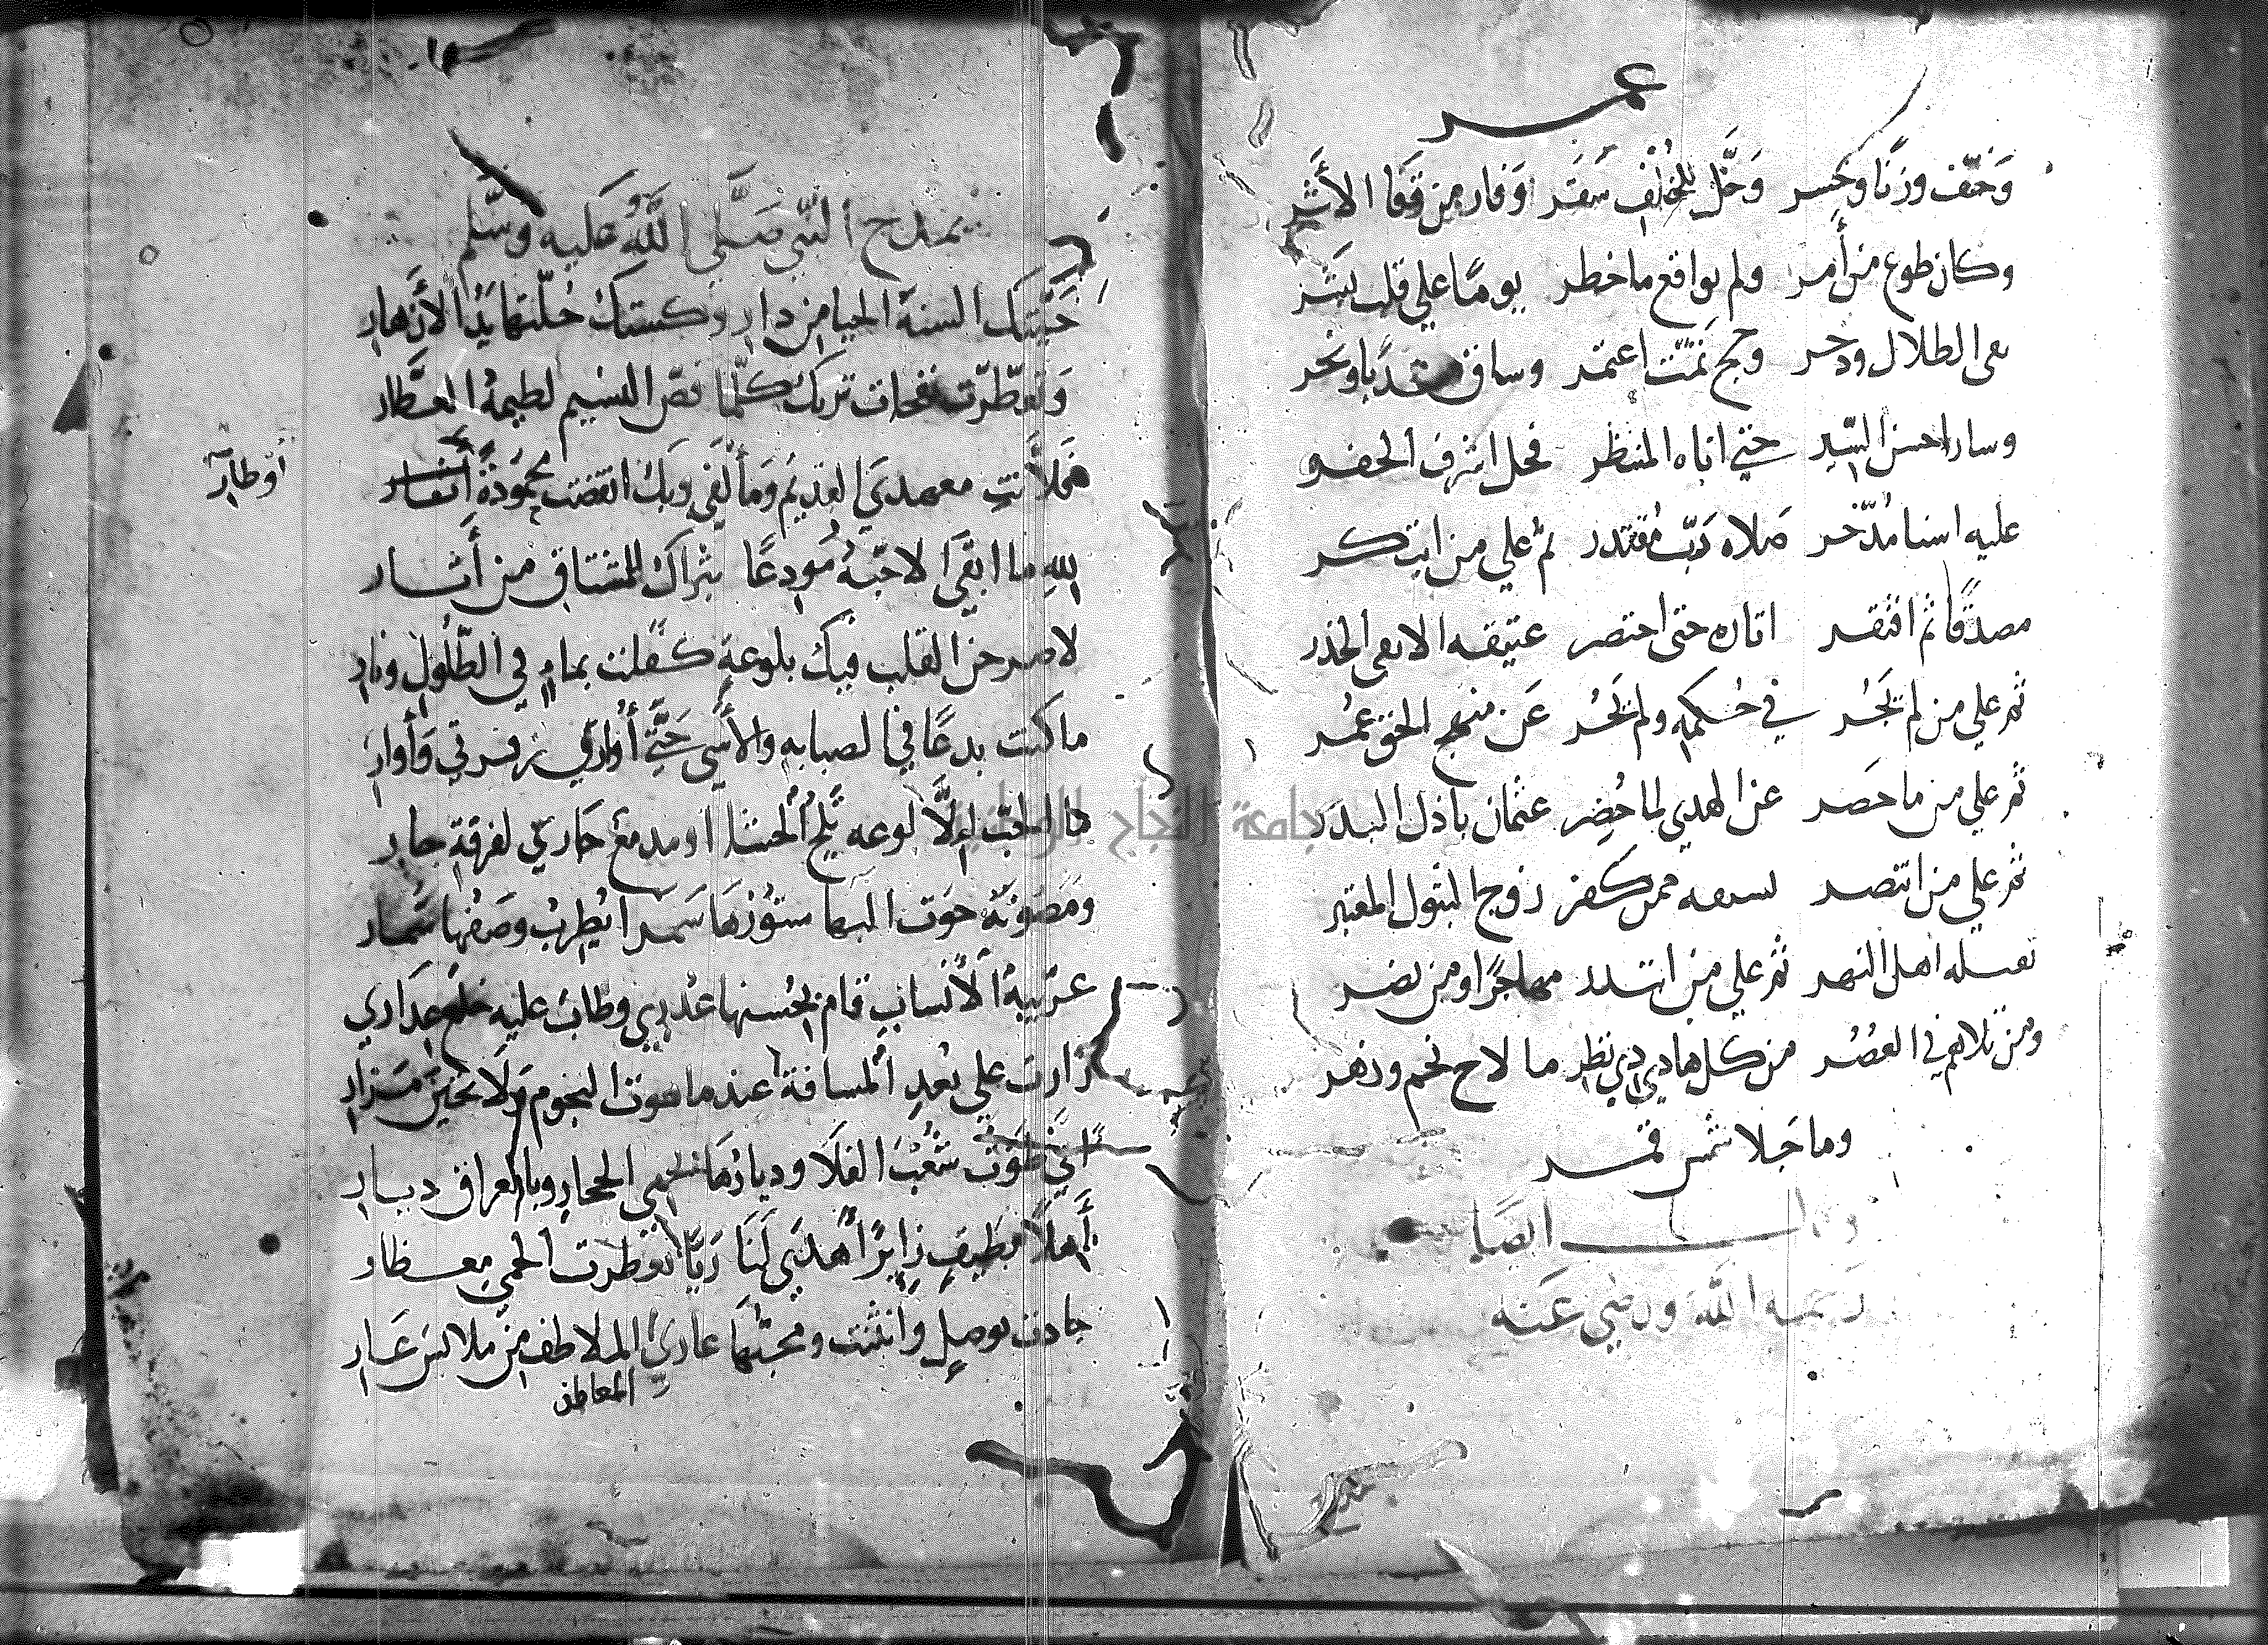 عمر
وَخفّف وزنًا وكسر وَحَّل للخلف سَقَر وَفار من قفا الأثر
وكان طوع من أمر ولم يواقع ما خطر يومًا علي قلب بشر
الطلال وحج ثمّت اعتمر وساق ونحر
وسار احسن السّير حتي اتاه المنتظر فحل اشرف الحفر
عليه اسنا مدّخر صلاه رَبّ مُقتدر ثم علي من ابتكر
مصدّقًا ثم افتقر اتاره حتى احتضر عتيقه الحذر
ثم علي من لم يَجُر في حُكمه ولم يَحُر عَن منهج الحق عُمر
ثم علي من ما حَصر عن الهدي لما حُصِر عثمان باذل البدر
ثم علي من انتصر ممن كفر زوج البتول المعتبر
اهل النهر ثم علي من ابتدر مهاجرًا ومن نصر
ومن تلاهم في العُصُر من كل هادي ذي نظر ما لاح نجم وزهر
وما جَلا شمس قمر
وقال ايضًا
رحمه الله ورضي عنه
يمدح النبي صَلَّى اللَّهُ عَليه وسَّلم
حَيّتك السنة الحيا من دار وكستك حُلّتها يَدُ الأزهار
وَتعطّرت نفحات تربك كلّما فضّ النسيم لطيمة العطَّار
فلأنتِ معهديَ القديم وَمألفي وبك انقضت محمودةً أوطار
اوطار
الله ما ابقي الاحبّةُ مُودعًا بثراك للمشتاق من أَثار
القلب فيك بلوعةٍ كفلت بماءٍ في الطّلول ونار
ما كنت بدعًا في الصبابه والأسي حَتَّي أواري زفرتي وَأواري
ما الحبّ إلاَّ لوعه تلج الحشا او مدمع جَاري لفرقة جار
ومَصونة حوت البها ستورُها سَمرا يُطرِبُ وصفُها سُمّار
عَرَبيةُ الأنساب قام بحُسنها عُذري وطابَ عليه خلع عِذَاري
زارت علي بُعدِ المسافة عندما هوت النجوم وَلَا تحينَ مَزار
انّي طوَت شُعبَ الفلَا وديارُهَا الحجاز وبالعراق ديار
أَهلًا بطيفٍ زايرًا أهدَي لَنَا رَيًّا تعطّرت الحمي معطار
جادت بوصلٍ وانثنت ومحبّها عاري الملاطف من ملابس عَار
المعاطف